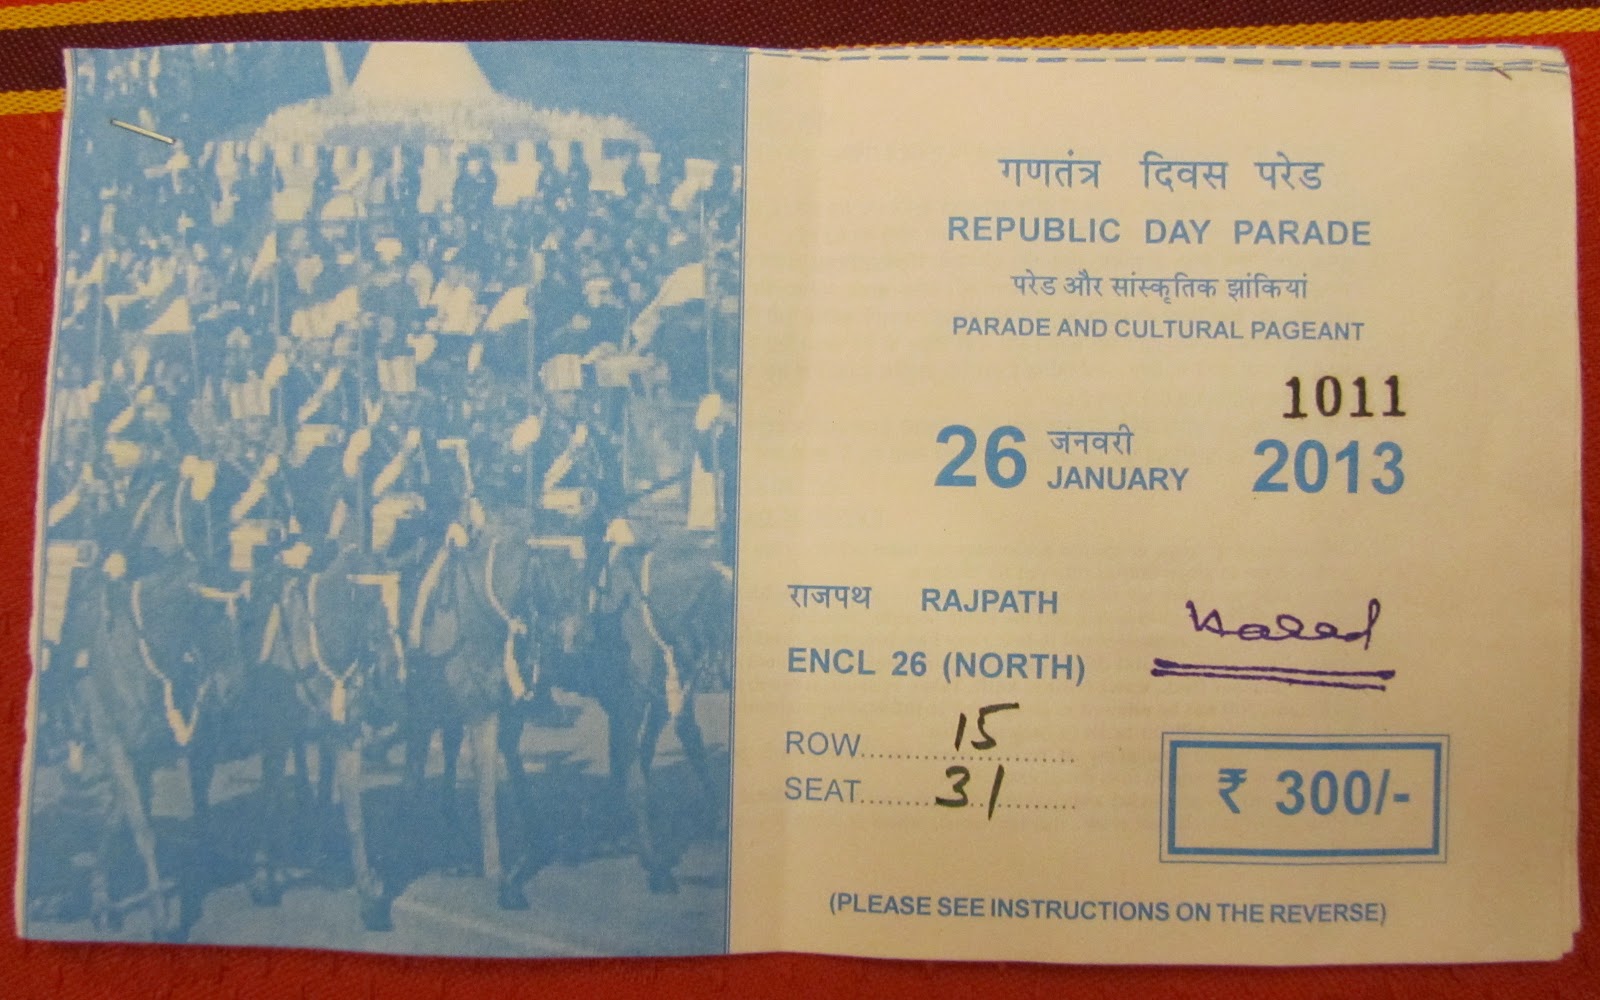 गणतंत्र दिवस परेड
REPUBLIC DAY PARADE
परेड और सांस्कृतिक झांकियां
PARADE AND CULTURAL PAGEANT
1011
26 जनवरी JANUARY 2013
राजपथ RAJPATH
ENCL 26 (NORTH)
ROW 15
SEAT 31
₹ 300/-
(PLEASE SEE INSTRUCTIONS ON THE REVERSE)